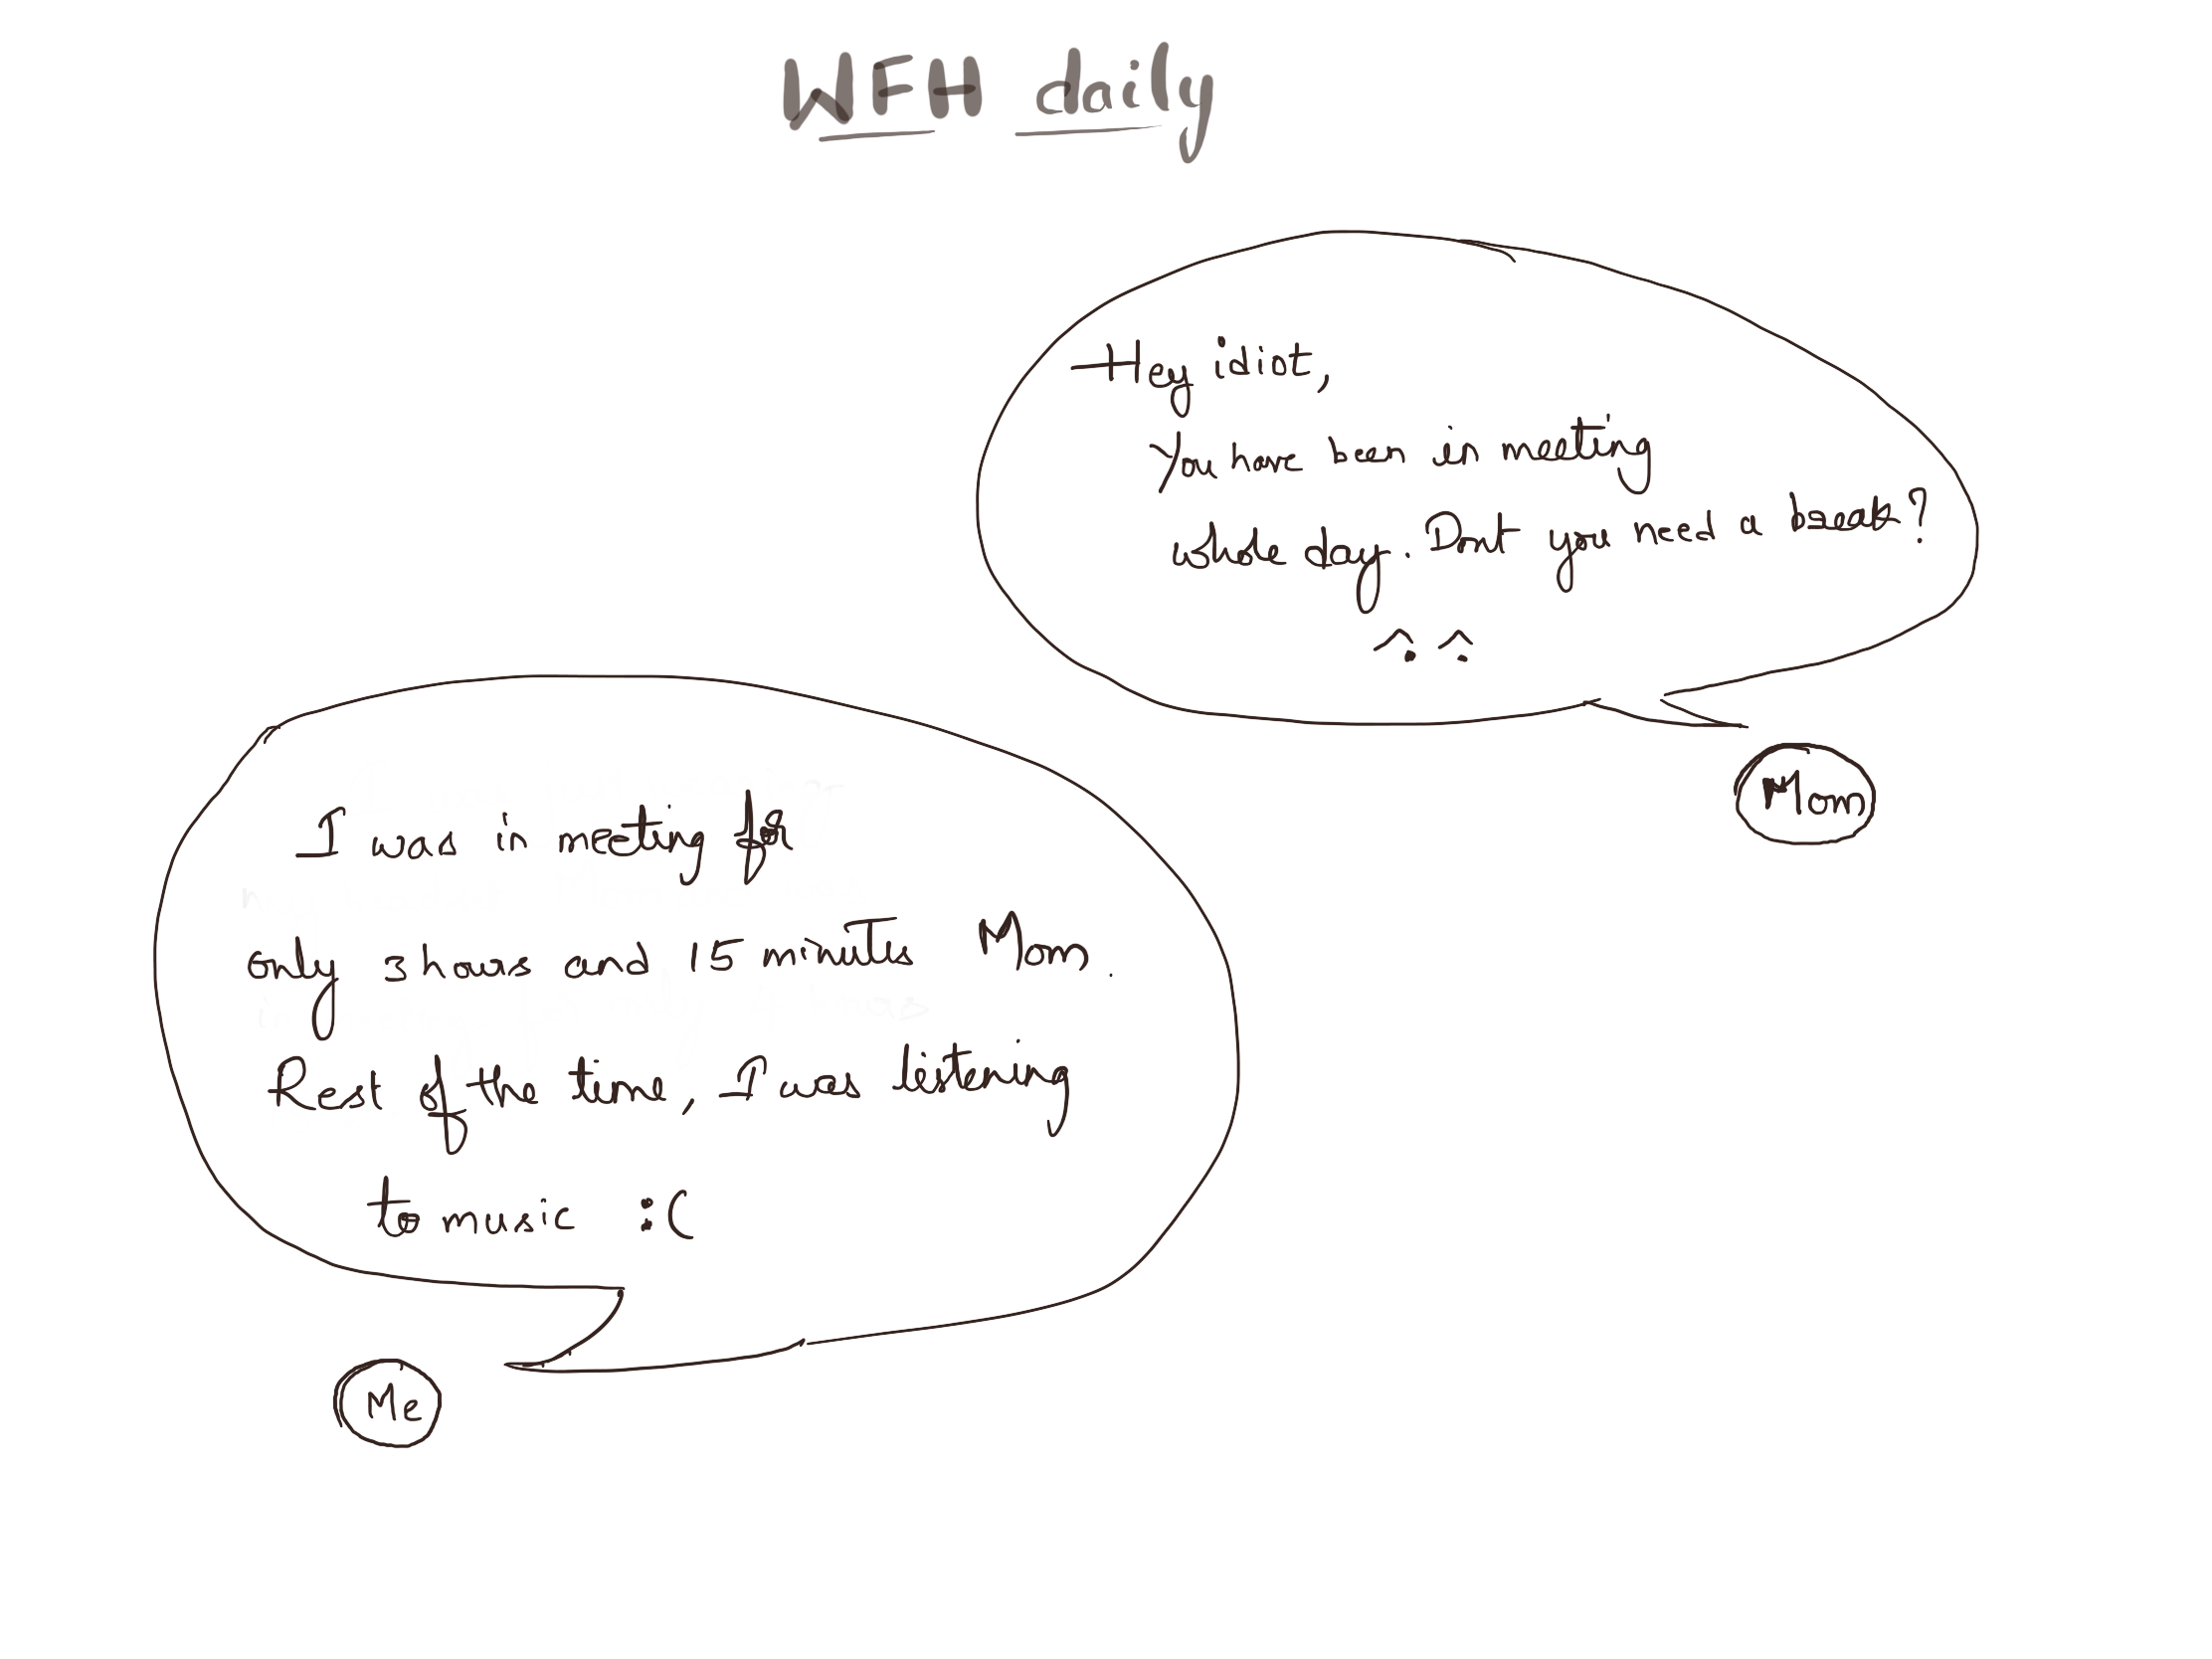 WFH daily
Hey idiot,
You have been in meeting
whole day. Dont you need a break?
Mom
I was in meeting for
only 3 hours and 15 minutes Mom.
Rest of the time, I was listening
to music :(
Me